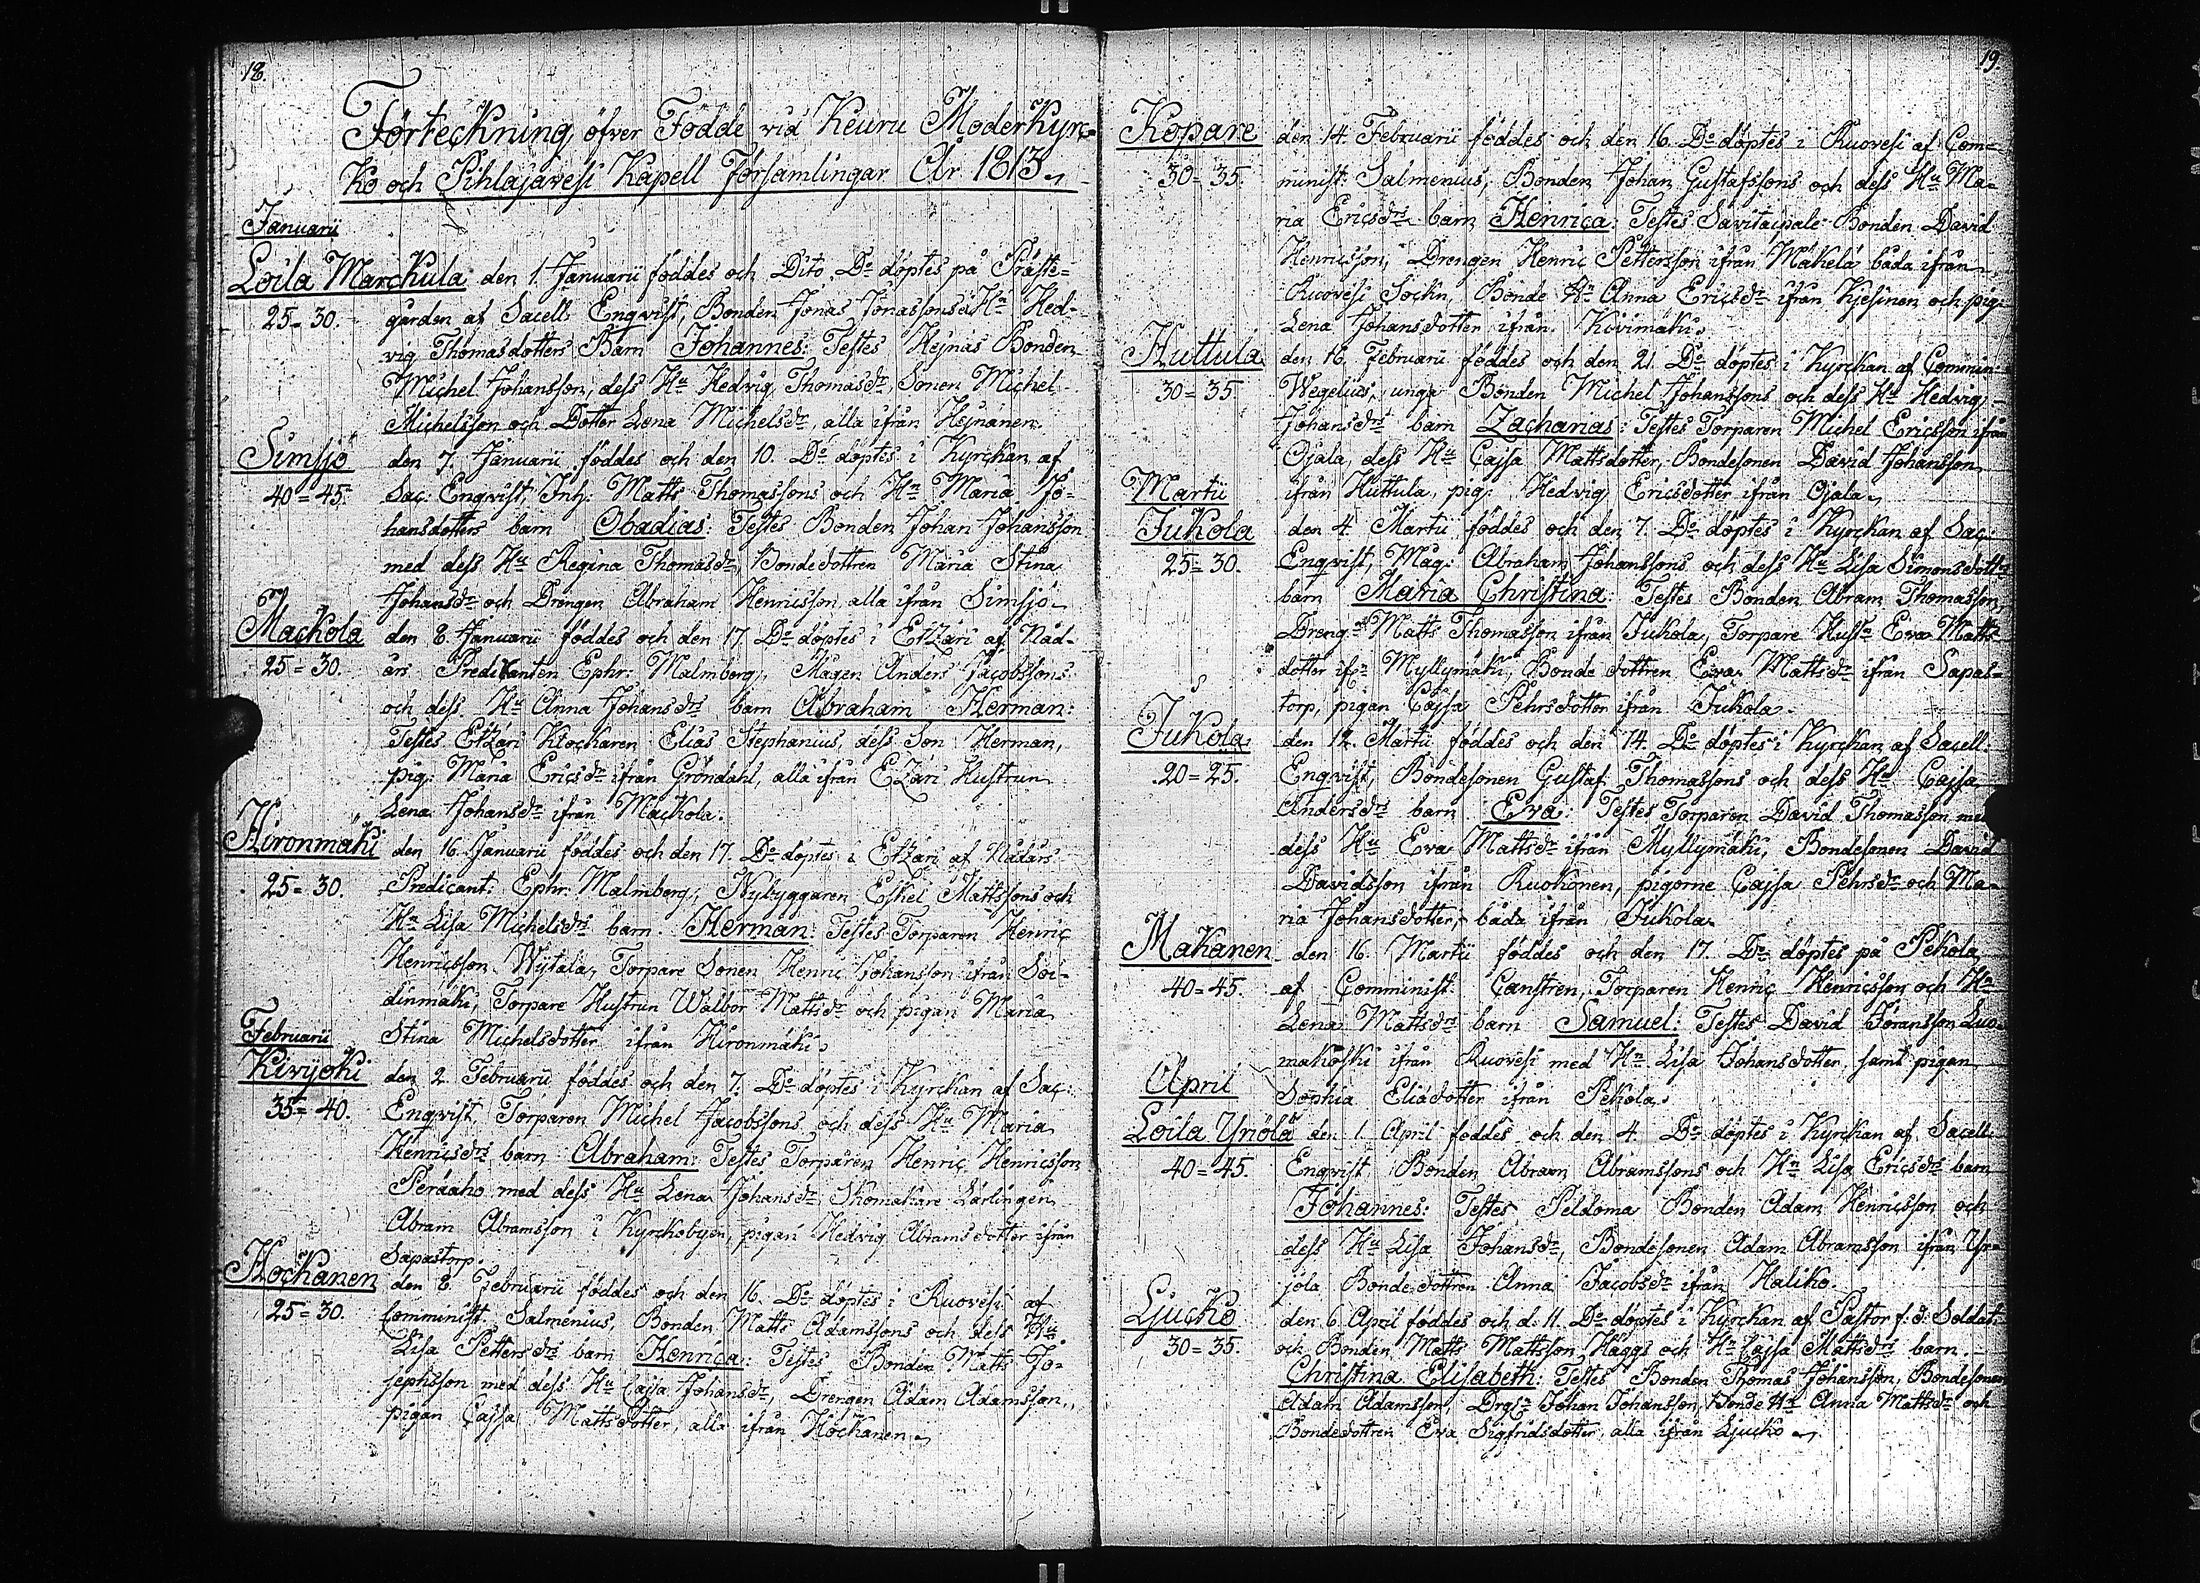 18.
Förteckning öfver Födde vid Keuru Moderkyrc-
ko och Pihlajavesi Kapell Församlingar År 1813.
Januarii
Loila Marckula den 1. Januarii föddes och Dito Do döptes på Präste-
25=30. gården af Sacell. Engvist, Bonden Jonas Jonassons & Hu Hed-
vig Thomasdotters Barn Johannes: Testes Hejnäs Bonden
Michel Johansson, dess Hu Hedvig Thomasdr, Sonen Michel
Michelsson och Dotter Lena Michelsdr, alla ifrån Hejnänen.
Simsjö den 7. Januarii föddes och den 10. Do döptes i Kyrckan af
40=45. Sac: Engvist, Inh: Matts Thomassons och Hu Maria Jo-
hansdotters barn Obadias: Testes Bonden Johan Johansson
med dess Hu Regina Thomasdr, Bondedottren Maria Stina
Johansdr och Drengen Abraham Henricsson, alla ifrån Simsjö
Mackola den 8. Januarii föddes och den 17. Do döptes i Etzäri af Nåd-
25=30. års Predikanten Ephr: Malmberg, Mågen Anders Jacobssons
och dess Hu Anna Johansdrs barn Abraham Herman:
Testes Etzäri Klockaren Elias Stephanius, dess Son Herman,
pig: Maria Ericsdr ifrån Gröndahl, alla ifrån Etzäri Hustrun
Lena Johansdr ifrån Mackola.
Hironmäki den 16. Januarii föddes och den 17. Do döptes i Etzäri af Nådårs
25=30. Predicant: Ephr: Malmberg, Nybyggaren Eskel Mattssons och
Hu Lisa Michelsdrs barn. Herman: Testes Torparen Henric
Henricsson Wytala, Torpare Sonen Henric Johansson ifrån Soi-
dinmäki, Torpare Hustrun Walbor Mattsdr och pigan Maria
Stina Michelsdotter ifrån Hironmäki.
Februarii
Kivijoki den 2. Februarii föddes och den 7. Do döptes i Kyrckan af Sac:
35=40. Engvist, Torparen Michel Jacobssons och dess Hu Maria
Henricsdrs barn Abraham: Testes Torparen Henric Henricsson
Peräaho med dess Hu Lena Johansdr Skomakare Lärlingen
Abram Abramsson i Kyrckobyen, pigan Hedvig Abramsdotter ifrån
Sapastorp.
Hockanen den 8. Februarii föddes och den 16. Do döptes i Ruovesi af
25=30. Comminist. Salmenius, Bonden Matts Adamssons och dess Hu
Lisa Pettersdrs barn Henrica: Testes Bonden Matts Jo-
sephsson med dess Hu Cajsa Johansdr, Drengen Adam Adamsson,
pigan Cajsa Mattsdotter, alla ifrån Hockanen.
19.
Kopare den 14. Februarii föddes och den 16. Do döptes i Ruovesi af Com-
30=35. minist. Salmenius, Bonden Johan Gustafssons och dess Hu Ma-
ria Ericsdrs barn Henrica: Testes Savitaipale Bonden David
Henricsson, Drengen Henric Pettersson ifrån Mäkelä båda ifrån
Ruovesi Sockn, Bonde Hu Anna Ericsdr ifrån Kjesinen och pig:
Lena Johansdotter ifrån Koivimäki.
Huttula den 16. Februarii föddes och den 21. Do döptes i Kyrckan af Commin:
30=35. Wegelius, unga Bonden Michel Johanssons och dess Hu Hedvig
Johansdrs barn Zacharias: Testes Torparen Michel Ericsson ifrån
Ojala, dess Hu Cajsa Mattsdotter, Bondesonen David Johansson
Martii ifrån Huttula, pig: Hedvig Ericsdotter ifrån Ojala.
Jukola den 4. Martii föddes och den 7. Do döptes i Kyrckan af Sac:
25=30. Engvist, Måg: Abraham Johanssons och dess Hu Lisa Simonsdotts
barn Maria Christina: Testes Bonden Abram Thomasson,
Dreng: Matts Thomasson ifrån Jukola, Torpare Hustn Eva Matts-
dotter ifn Myllymäki, Bonde dottren Eva Mattsdr ifrån Sapas-
torp, pigan Cajsa Pehrsdotter ifrån Jukola.
Jukola den 12. Martii föddes och den 14. Do döptes i Kyrckan af Sacell.
20=25. Engvist, Bondesonen Gustaf Thomassons och dess Hu Cajsa
Andersdrs barn Eva: Testes Torparen David Thomasson med
dess Hu Eva Mattsdr ifrån Myllymäki, Bondesonen David
Davidsson ifrån Ruokonen, pigorne Cajsa Pehrsdr och Ma-
ria Johansdotter, båda ifrån Jukola.
Makanen den 16. Martii föddes och den 17. Do döptes på Pekola
40=45. af Comminist. Canstren, Torparen Henric Henricsson och Hu
Lena Mattsdrs barn Samuel: Testes David Jöransson Luo-
makoski ifrån Ruovesi med Hu Lisa Johansdotter, samt pigan
April Sophia Eliädotter ifrån Pekola.
Loila Yriölä den 1. April föddes och den 4. Do döptes i Kyrckan af Sacell.
40=45. Engvist Bonden Abram Abramssons och Hu Lisa Ericsdrs barn
Johannes: Testes Peldoma Bonden Adam Henricsson och
dess Hu Lisa Johansdr, Bondesonen Adam Abramsson ifrån Yr-
jölä Bonde dottren Anna Jacobsdr ifrån Haliko.
Ljucko den 6 April föddes och d. 11. Do döptes i Kyrckan af Pastor f. d: Soldat:
30=35. och Bonden Matts Mattsson Häggs och Hu Cajsa Mattsdrs barn.
Christina Elisabeth: Testes Bonden Thomas Johansson, Bondesonen
Adam Adamsson, Drgn Johan Johansson, Bonde Hu Anna Mattsdr och
Bondedottren Eva Sigfridsdotter, alla ifrån Ljucko.